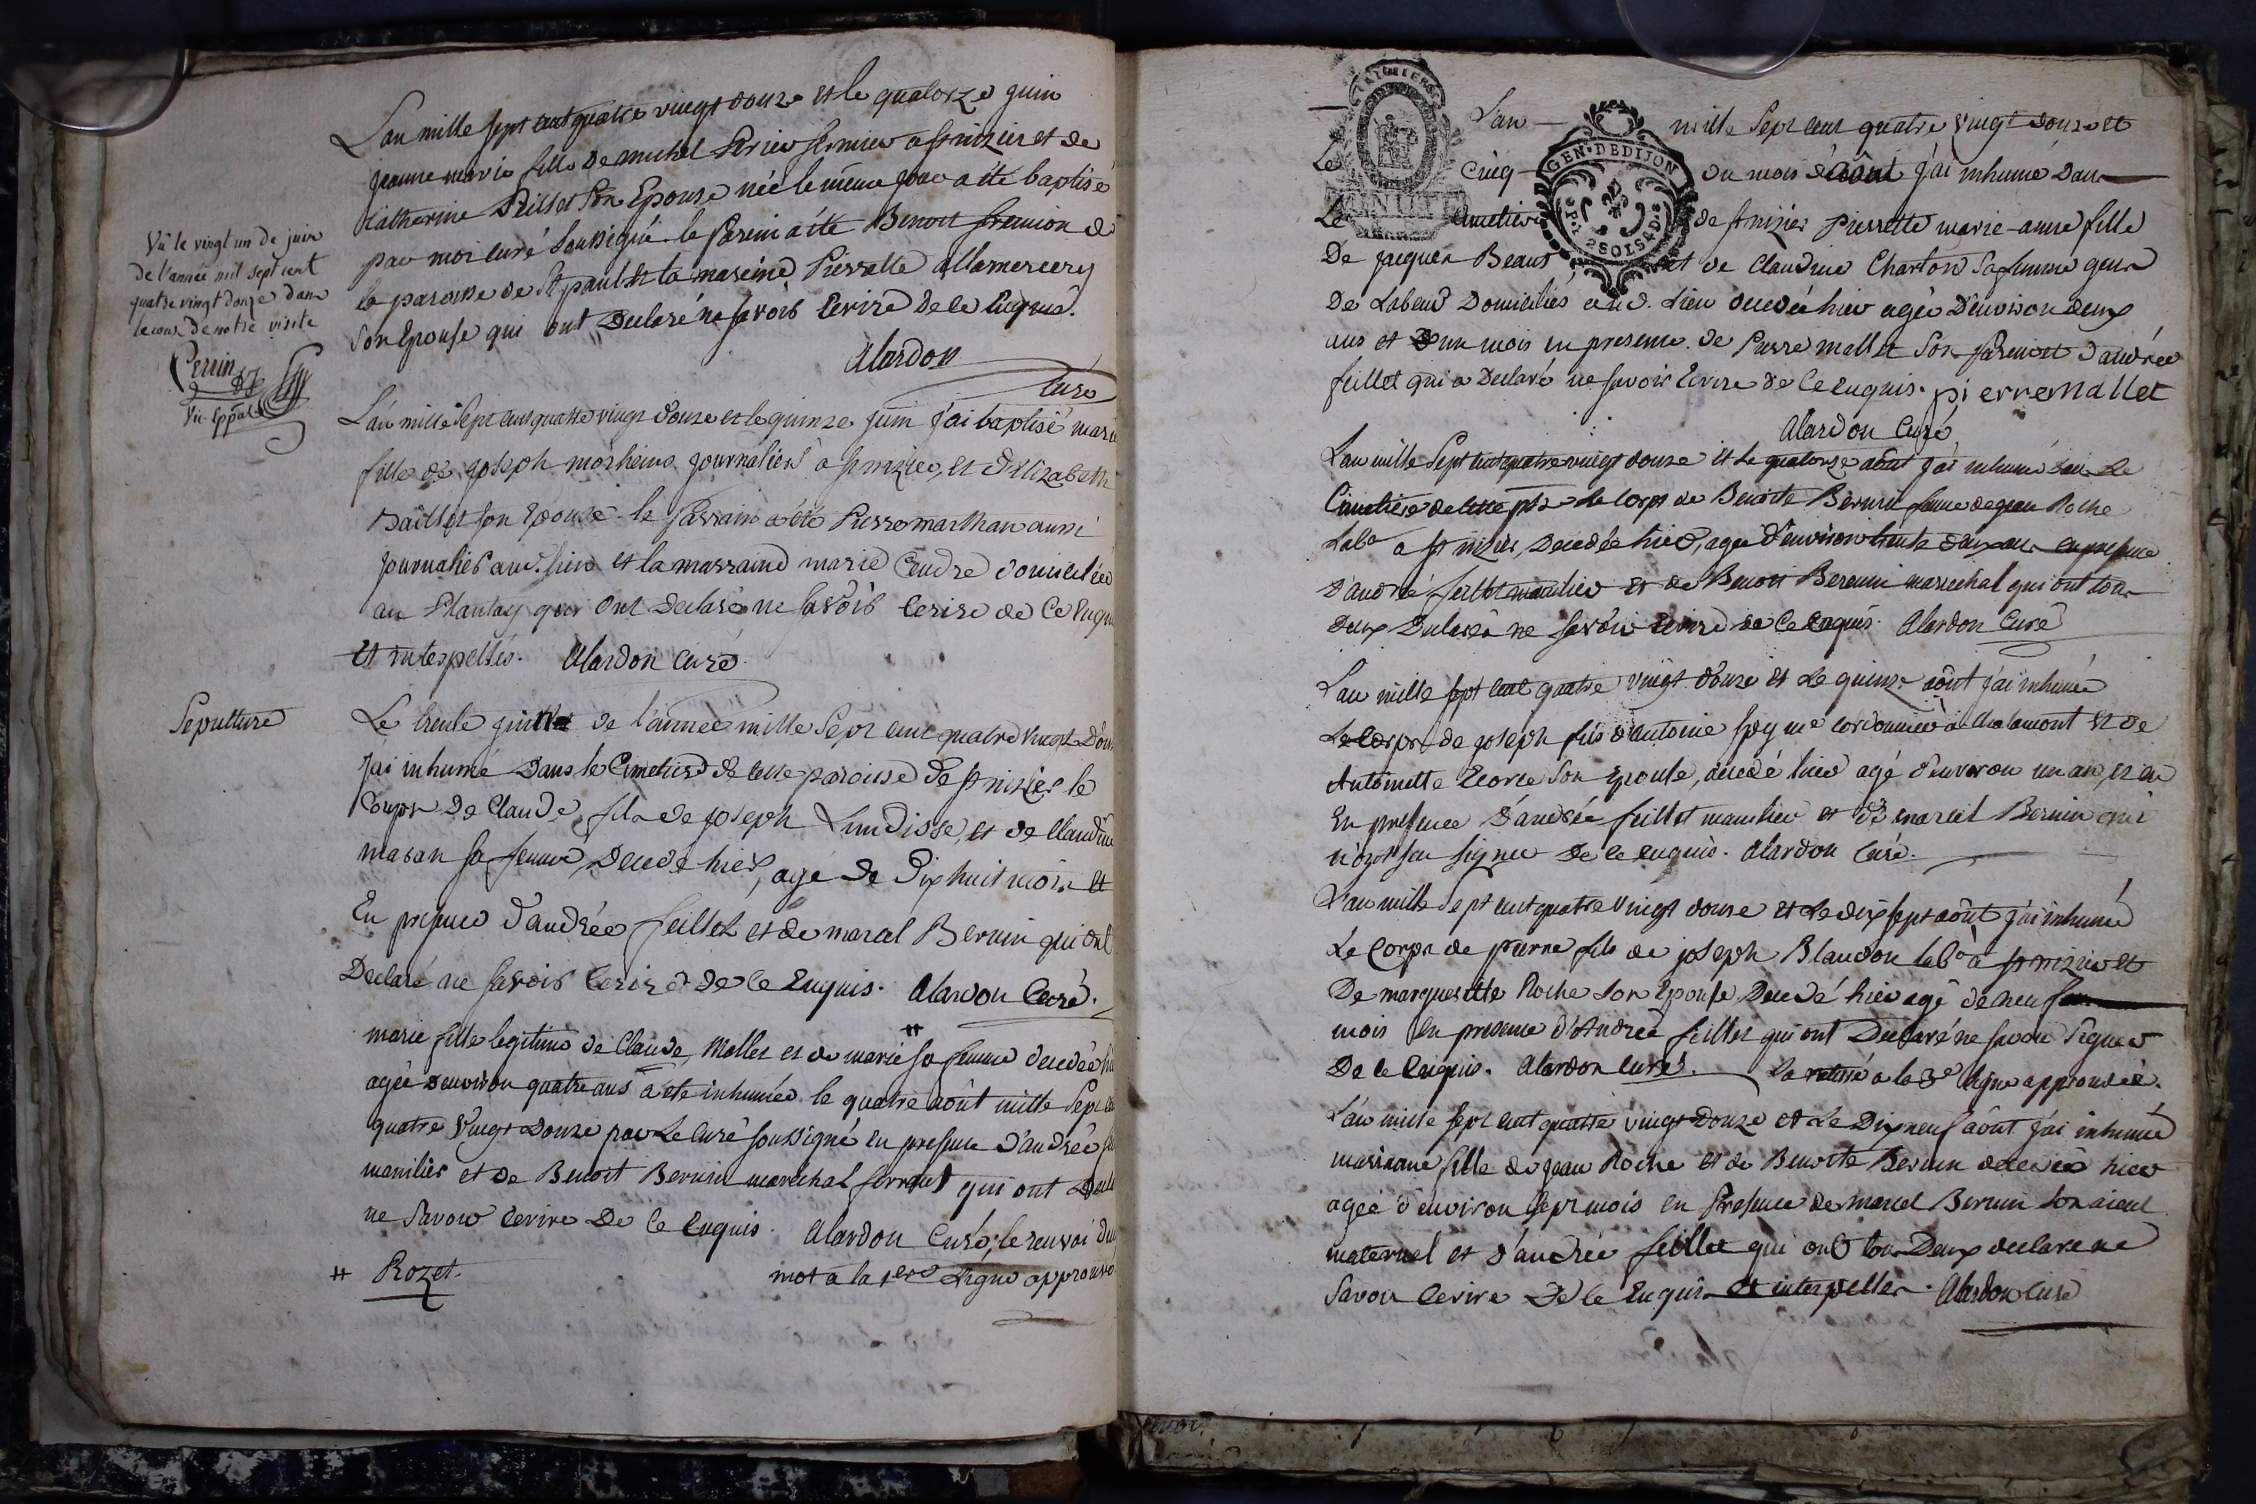 L'an mille sept cent quatre vingt douze et le quatorze juin
jeanne marie fille de michel Perier fermier a st nizier et de
Catherine Feillet son Epouse née le même jour a été baptisé
par moi curé soussigné le parain a été Benoit fremion de
la paroisse de st paul et la mareine Pierrette allamercery
son Epouse qui ont Declaré ne savoir Ecrire de ce Enquis.
Alardon
Curé
Vû le vingt un de juin
de l'année mil sept cent
quatre vingt douze dans
le cours de notre visite
Perrin
Vic. Eppal
L'an mille sept cent quatre vingt douze et le quinze juin j'ai baptisé marie
fille de joseph morheins journalier a st nizier, et d'Elizabeth
Paillet son Epouse. le parrain a été Pierre marthan aussi
journalier aud. lieu et la marraine marie Cendre domiciliée
au Plantay qui ont declaré ne savoir Ecrire de Ce Enqu
et interpellés. Alardon Curé.
Sepulture
Le trente juillet de l'année mille Sept cent quatre vingt Dou
J'ai inhumé Dans le Cimetiere de cette paroisse de st nizier le
Corps De Claude, fils de joseph Lundisse, et de Claudine
maran sa femme, Decedé hier, agé de Dix huit mois et
En presence d'andrée feillet et de marcel Bernin qui ont
Declaré ne savoir Ecrire de Ce Enquis. Alardon Curé.
marie fille legitime de Claude Mollet et de marie # sa femme decedée hi
agée d'environ quatre ans a été inhumée le quatre août mille Sept ce
quatre Vingt Douze par Le Curé soussigné en presence d'andrée f
manilier et de Benoit Bernin marechal ferrant qui ont Decla
ne Savoir Ecrire De Ce Enquis. Alardon Curé, le renvoi du
# Rozet. mot a la 1ere Ligne approuvé
GEN. DE DIJON
2 SOLS 4 D.S
L'an mille Sept cent quatre vingt douze et
Le Cinq du mois d'août j'ai inhumé Dans
Le Cimetiere de st nizier Pierrette marie-anne fille
De jacques Beaus et de Claudine Charton sa femme gens
De Labeur Domiciliés aud. Lieu decedée hier agée D'environ deux
ans et un mois en presence de Pierre mollet son parein et d'andrée
feillet qui a Declaré ne savoir Ecrire de Ce enquis. pierre Mallet
Alardon Curé
L'an mille Sept cent quatre vingt douze et le quatorze août j'ai inhumé dans Le
Cimetiere de cette psse le Corps de Benoite Bernin femme de jean Roche
Labr a st nizier, Decedée hier, agée d'environ trente deux ans en presence
D'andrée feillet manilier et de Benoit Bernin marechal qui ont tous
Deux Declaré ne savoir Ecrire de ce enquis. Alardon Curé
L'an mille sept cent quatre vingt douze et Le quinze août j'ai inhumé
Le Corps de joseph fils d'antoine cordonnier a Chalamont et de
Antoinette son Epouse, decedé hier agé d'environ un an, et en
En presence D'andrée feillet manilier et de marcel Bernin qui
n'ont su signer De ce enquis. Alardon Curé.
L'an mille Sept cent quatre vingt douze et Le dix sept août j'ai inhumé
Le Corps de pierre fils de joseph Blandon labr a st nizier et
De marguerite Roche son Epouse, Decedé hier agé de neuf
mois En presence d'Andrée feillet qui ont Declaré ne savoir Signer
De ce Enquis. Alardon Curé. La rature a la 3e ligne approuvée.
L'an mille sept cent quatre vingt Douze et Le Dix neuf août j'ai inhumé
marianne fille de jean Roche et de Benoite Bernin decedée hier
agée d'environ sept mois en Presence de marcel Bernin son aieul
maternel et d'andrée feillet qui ont tous Deux declare ne
Savoir Ecrire De Ce Enquis et interpelles. Alardon Curé